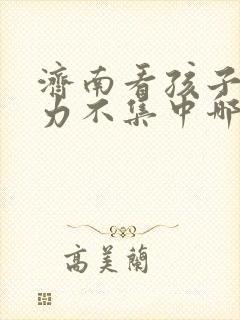 濟南看孩子
力不集中哪
高美蘭